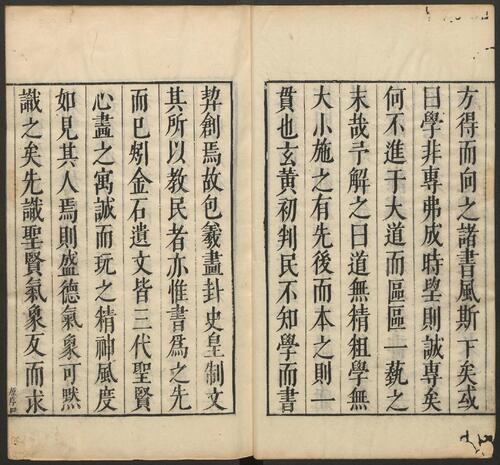 方得而向之諸書風斯下矣或
曰學非專弗成時朢則誠專矣
何不進于大道而區區一蓺之
末哉予解之曰道無精粗學無
大小施之有先後而本之則一
貫也玄黃初判民不知學而書
契創焉故包羲畫卦史皇制文
其所以教民者亦惟書爲之先
而已矧金石遺文皆三代聖賢
心畫之寓誠而玩之精神風度
如見其人焉則盛德氣象可默
識之矣先識聖賢氣象友而求